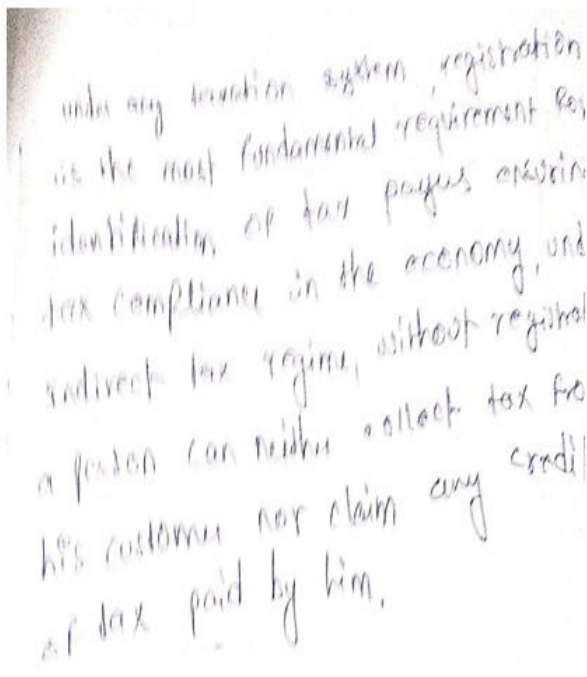 under any taxation system, registration
is the most fundamental requirement for
identification of tax payers ensurin
tax compliance in the economy, und
indirect tax regime, without registra
a person can neither collect tax fro
his customer nor claim any credit
of tax paid by him.